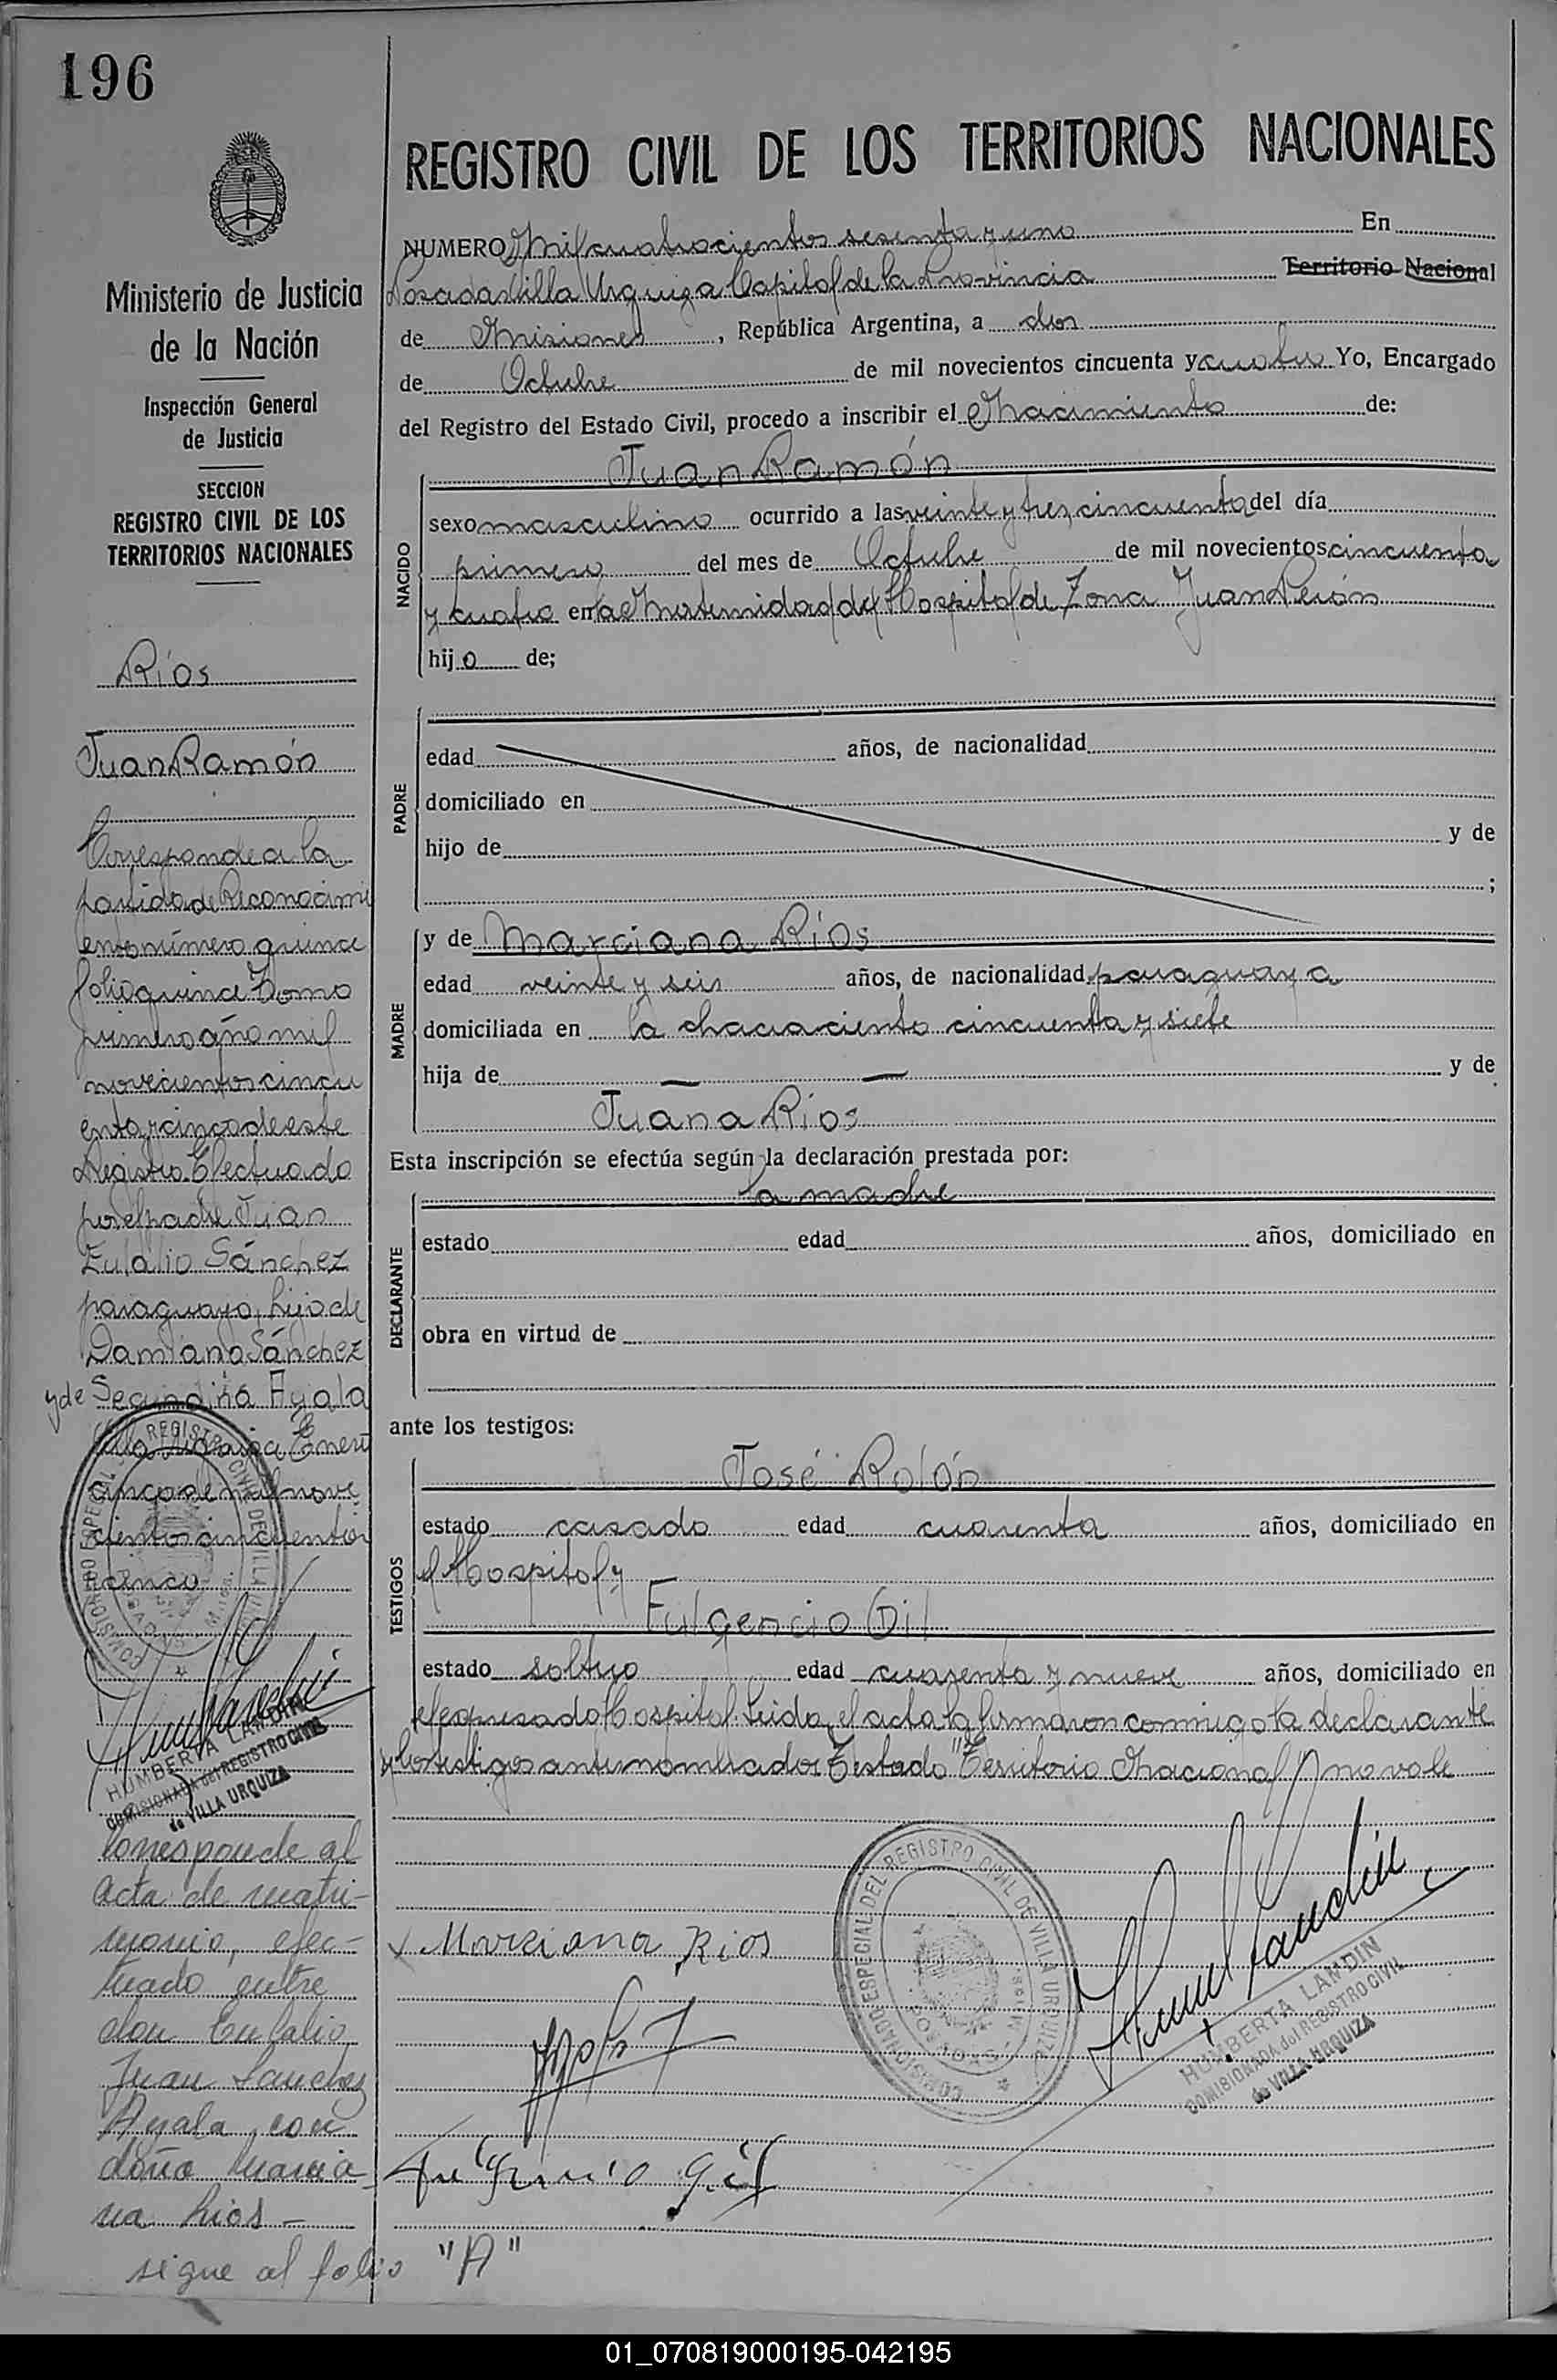 196
Ministerio de Justicia
de la Nación
Inspección General
de Justicia
SECCION
REGISTRO CIVIL DE LOS
TERRITORIOS NACIONALES
Ríos
Juan Ramón
Corresponde a la
partida de Reconocimi
ento número quince
folio quince Tomo
primero año mil
novecientos cincu
enta y cinco de este
Registro. Efectuado
por el padre Juan
Eulalio Sánchez
paraguayo, hijo de
Damiana Sánchez
y de Segundina Ayala
Villa Urquiza Enero
cinco de mil nove
cientos cincuentai
cinco
HUMBERTA LANDIN
COMISIONADA del REGISTRO CIVIL
de VILLA URQUIZA
Corresponde al
Acta de matri-
monio, efec-
tuado entre
don Eulalio
Juan Sanchez
Ayala con
doña Marcia-
na Rios -
sigue al folio "A"
REGISTRO CIVIL DE LOS TERRITORIOS NACIONALES
NUMERO Mil cuatrocientos sesenta y uno En
Posadas Villa Urquiza Capital de la Provincia Territorio Nacional
de Misiones, República Argentina, a dos
de Octubre de mil novecientos cincuenta y cuatro Yo, Encargado
del Registro del Estado Civil, procedo a inscribir el Nacimiento de:
Juan Ramón
NACIDO
sexo masculino ocurrido a las veinte y tres, cincuenta del día
primero del mes de Octubre de mil novecientos cincuenta
y cuatro en la Maternidad del Hospital de Zona Juan Perón
hijo de;
PADRE
edad años, de nacionalidad
domiciliado en
hijo de y de
;
MADRE
y de Marciana Ríos
edad veinte y seis años, de nacionalidad paraguaya
domiciliada en la chacra ciento cincuenta y siete
hija de — — y de
Juana Ríos
Esta inscripción se efectúa según la declaración prestada por:
la madre
DECLARANTE
estado edad años, domiciliado en
obra en virtud de
ante los testigos:
TESTIGOS
José Rolón
estado casado edad cuarenta años, domiciliado en
el Hospital y
Fulgencio Gil
estado soltero edad cuarenta y nueve años, domiciliado en
el expresado Hospital. Leida el acta la firmaron conmigo la declarante
y los testigos antes nombrados Testado "Territorio Nacional" no vale
x Marciana Rios
Fulgencio Gil
COMISIONADO ESPECIAL DEL REGISTRO CIVIL DE VILLA URQUIZA
POSADAS
HUMBERTA LANDIN
COMISIONADA del REGISTRO CIVIL
de VILLA URQUIZA
01_070819000195-042195